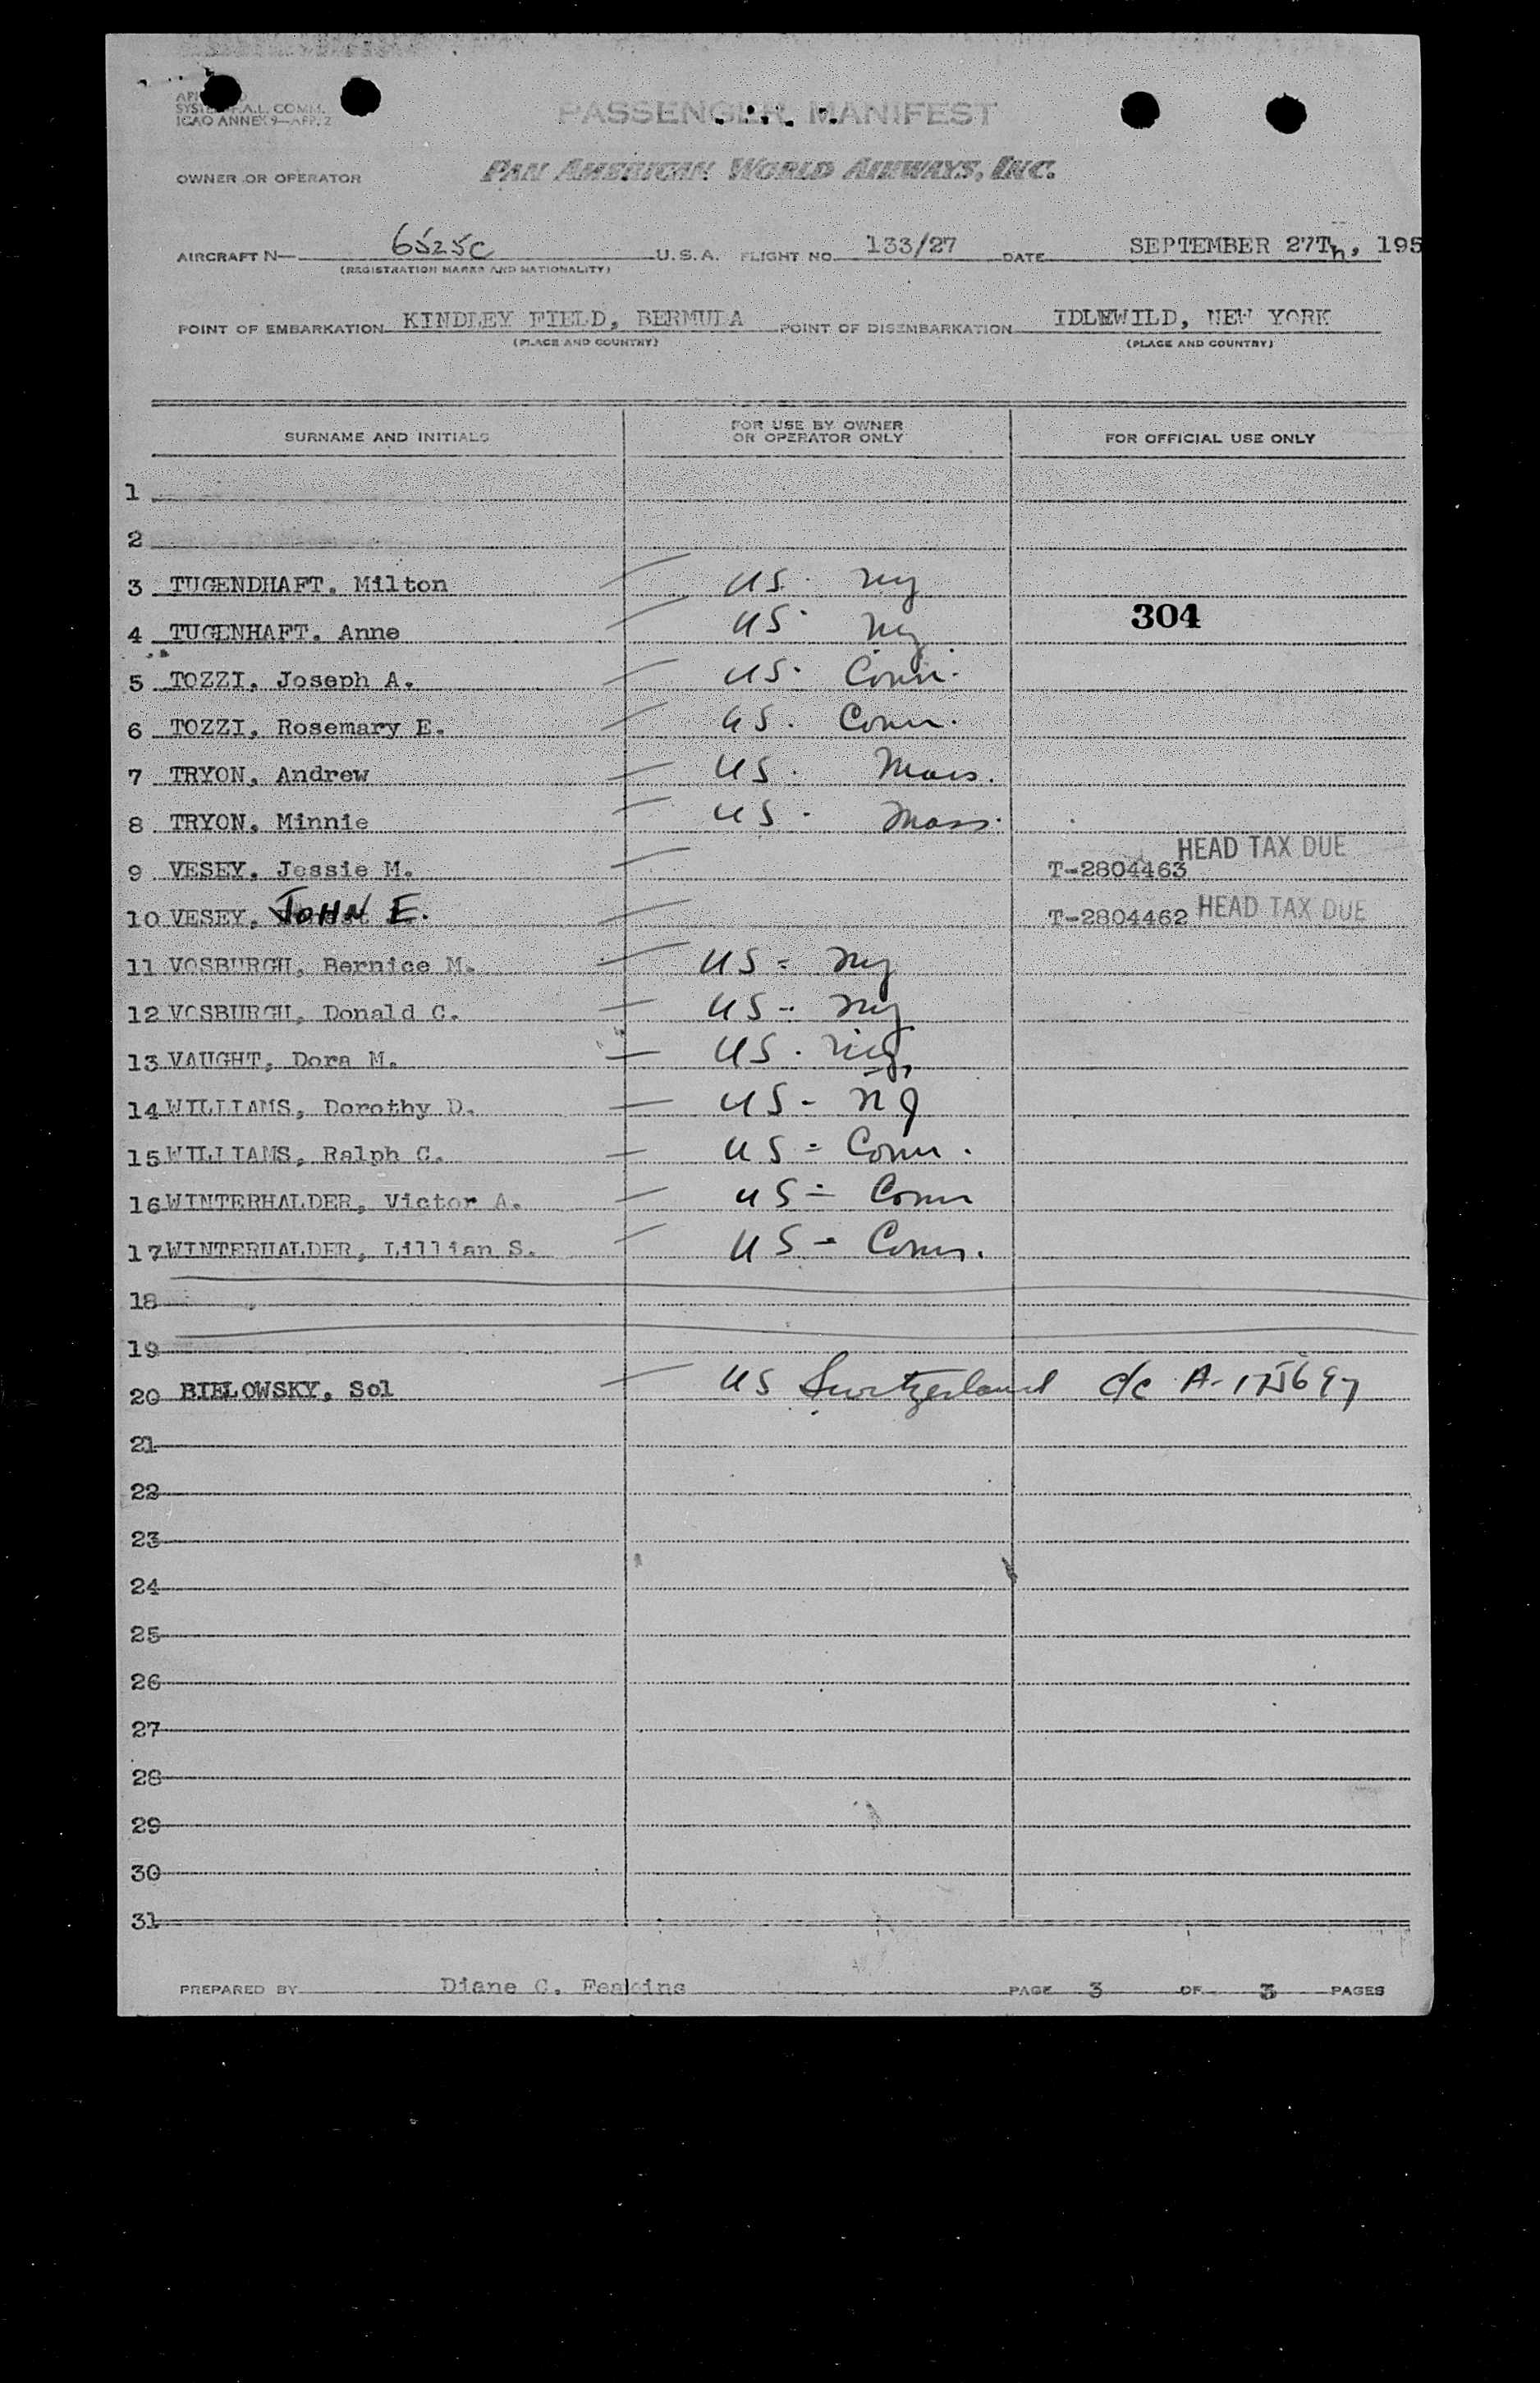 SYSTEM F.A.L. COMM.
ICAO ANNEX 9—APP. 2
PASSENGER MANIFEST
OWNER OR OPERATOR PAN AMERICAN WORLD AIRWAYS, INC.
AIRCRAFT N— 6525C U.S.A. FLIGHT NO. 133/27 DATE SEPTEMBER 27Th, 195
(REGISTRATION MARKS AND NATIONALITY)
POINT OF EMBARKATION KINDLEY FIELD, BERMUDA POINT OF DISEMBARKATION IDLEWILD, NEW YORK
(PLACE AND COUNTRY) (PLACE AND COUNTRY)
SURNAME AND INITIALS FOR USE BY OWNER OR OPERATOR ONLY FOR OFFICIAL USE ONLY
1
2
3 TUGENDHAFT. Milton US. ny
304
4 TUGENHAFT. Anne US. ny
5 TOZZI, Joseph A. US. Conn.
6 TOZZI, Rosemary E. US. Conn.
7 TRYON, Andrew US. Mass.
8 TRYON, Minnie US. Mass.
9 VESEY, Jessie M. T-2804463 HEAD TAX DUE
10 VESEY, JOHN E. T-2804462 HEAD TAX DUE
11 VOSBURGH, Bernice M. US = ny
12 VOSBURGH, Donald C. US - ny
13 VAUGHT, Dora M. US. ny
14 WILLIAMS, Dorothy D. US - NJ
15 WILLIAMS, Ralph C. US = Conn.
16 WINTERHALDER, Victor A. US = Conn
17 WINTERHALDER, Lillian S. US - Conn.
18
19
20 BIELOWSKY, Sol US Switzerland c/c A-
21
22
23
24
25
26
27
28
29
30
31
PREPARED BY Diane C. Feakins PAGE 3 OF 3 PAGES